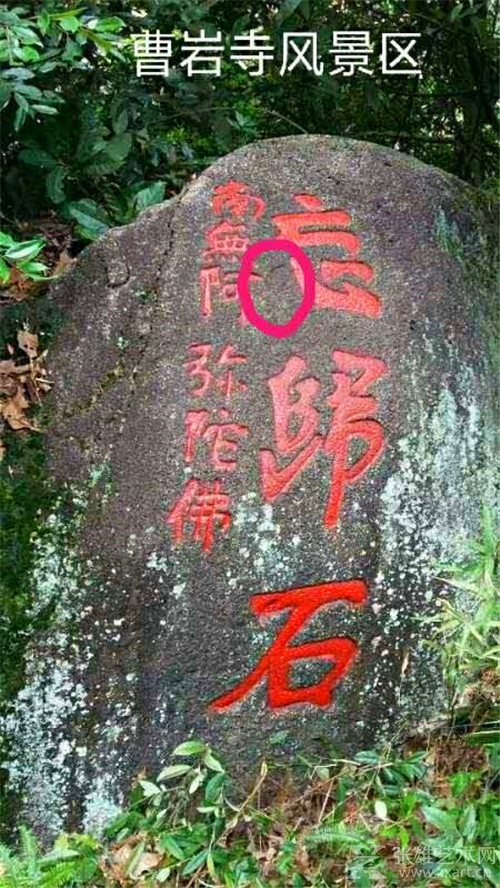 曹岩寺风景区
忘歸石
南無阿
弥陀佛
张雄艺术网
zxart.cn